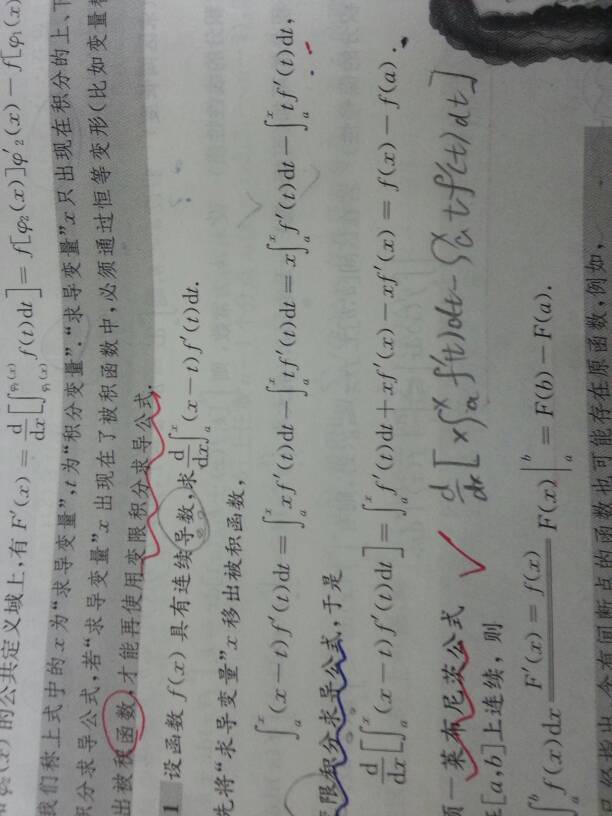 φ₂(x)的公共定义域上,有F′(x) = d/dx[∫_{φ₁(x)}^{φ₂(x)} f(t)dt] = f[φ₂(x)]φ′₂(x) − f[φ₁(x)
我们称上式中的x为“求导变量”,t为“积分变量”.“求导变量”x只出现在积分的上、下
积分求导公式,若“求导变量”x出现在了被积函数中,必须通过恒等变形(比如变量
出被积函数,才能再使用变限积分求导公式.
1 设函数f(x)具有连续导数,求 d/dx ∫_a^x (x−t)f′(t)dt.
先将“求导变量”x移出被积函数,
∫_a^x (x−t)f′(t)dt = ∫_a^x xf′(t)dt − ∫_a^x tf′(t)dt = x∫_a^x f′(t)dt − ∫_a^x tf′(t)dt,
限积分求导公式,于是
d/dx[∫_a^x (x−t)f′(t)dt] = ∫_a^x f′(t)dt + xf′(x) − xf′(x) = f(x) − f(a).
d/dx [x∫_a^x f′(t)dt − ∫_a^x t·f′(t)dt]
莱布尼茨公式
[a,b]上连续,则
∫_a^b f(x)dx F′(x) = f(x) F(x)|_a^b = F(b) − F(a).
含有间断点的函数也可能存在原函数,例如,